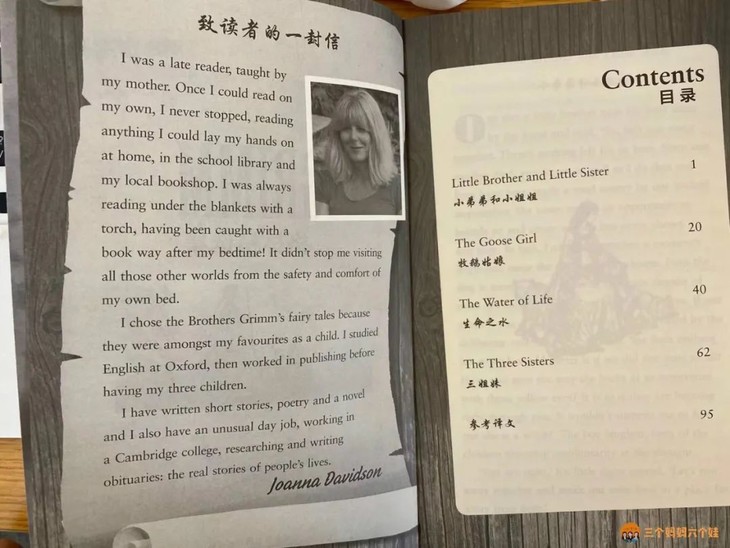 致读者的一封信
I was a late reader, taught by
my mother. Once I could read on
my own, I never stopped, reading
anything I could lay my hands on
at home, in the school library and
my local bookshop. I was always
reading under the blankets with a
torch, having been caught with a
book way after my bedtime! It didn't stop me visiting
all those other worlds from the safety and comfort of
my own bed.
I chose the Brothers Grimm's fairy tales because
they were amongst my favourites as a child. I studied
English at Oxford, then worked in publishing before
having my three children.
I have written short stories, poetry and a novel
and I also have an unusual day job, working in
a Cambridge college, researching and writing
obituaries: the real stories of people's lives.
Joanna Davidson
Contents
目录
Little Brother and Little Sister 1
小弟弟和小姐姐
The Goose Girl 20
牧鹅姑娘
The Water of Life 40
生命之水
The Three Sisters 62
三姐妹
参考译文 95
三个妈妈六个娃